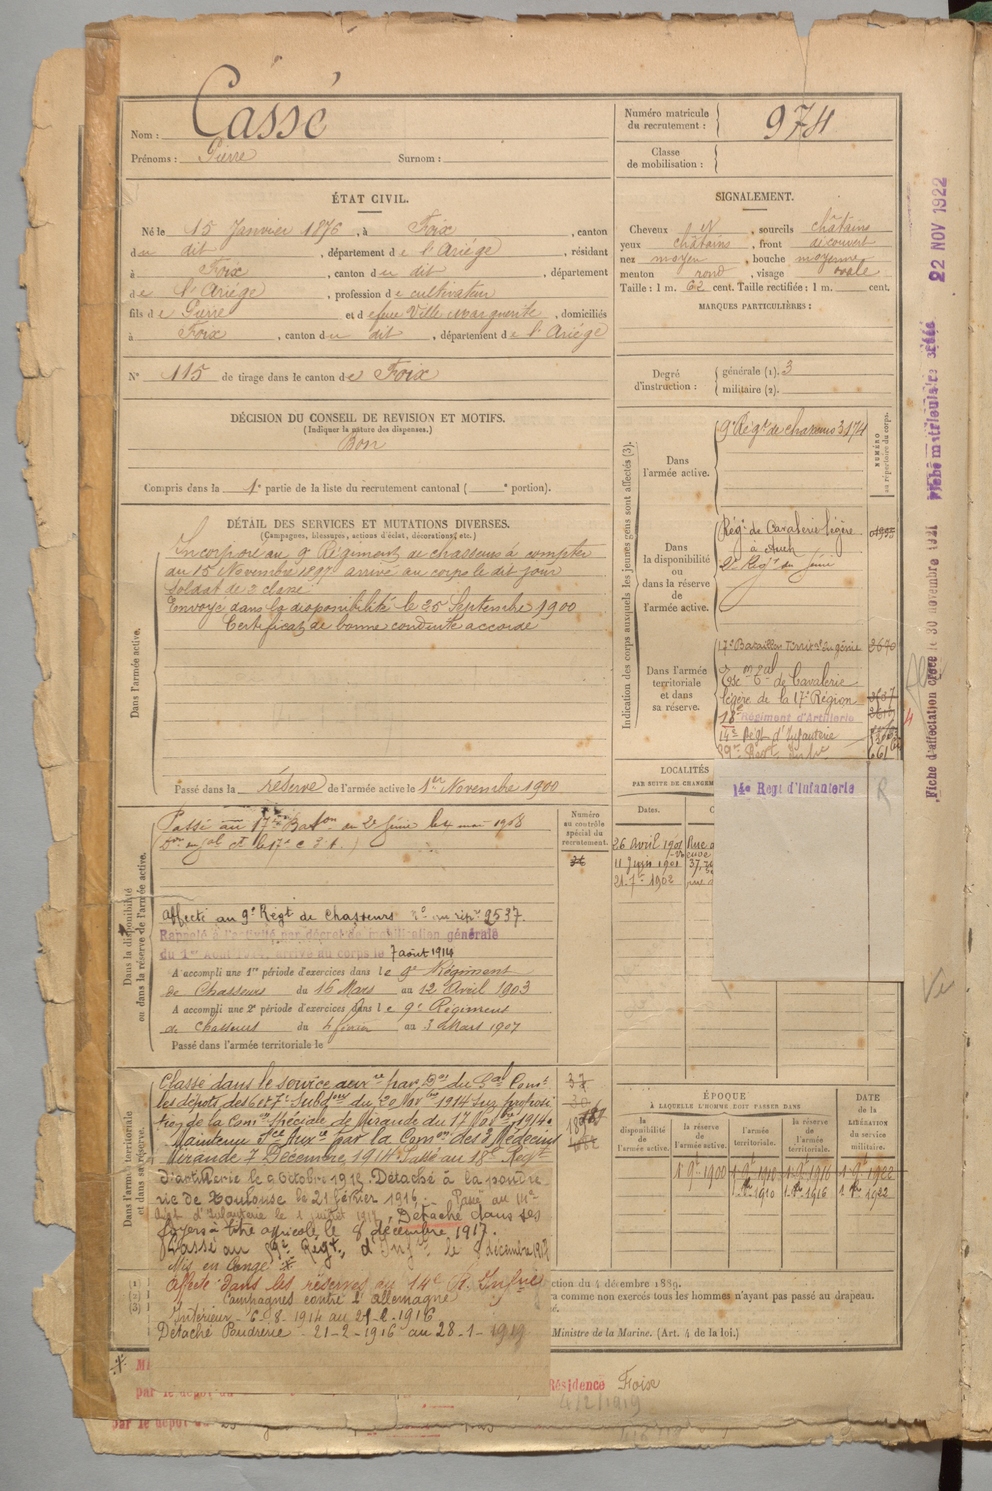 Nom : Cassé
Prénoms : Pierre Surnom :
Numéro matricule du recrutement : 974
Classe de mobilisation :
ÉTAT CIVIL.
Né le 15 Janvier 1876, à Foix, canton
du dit, département de l'Ariége, résidant
à Foix, canton du dit, département
de l'Ariége, profession de cultivateur
fils de Pierre et de feue Ville Marguerite, domiciliés
à Foix, canton du dit, département de l'Ariége
N° 115 de tirage dans le canton de Foix
DÉCISION DU CONSEIL DE REVISION ET MOTIFS.
(Indiquer la nature des dispenses.)
Bon
Compris dans la 1e partie de la liste du recrutement cantonal ( e portion).
DÉTAIL DES SERVICES ET MUTATIONS DIVERSES.
(Campagnes, blessures, actions d'éclat, décorations, etc.)
Dans l'armée active.
Incorporé au 9e Régiment de chasseurs à compter
du 15 Novembre 1897 arrivé au corps le dit jour
Soldat de 2 classe
Envoyé dans la disponibilité le 25 Septembre 1900
Certificat de bonne conduite accordé
Passé dans la réserve de l'armée active le 1er Novembre 1900
Dans la disponibilité ou dans la réserve de l'armée active.
Passé au 17e Baton du 2e Génie le 4 mai 1903
Affecté au 9e Régt de Chasseurs no au rép. 2537.
Rappelé à l'activité par décret de mobilisation générale
du 1er Août 1914, arrivé au corps le 7 août 1914
A accompli une 1re période d'exercices dans le 9e Régiment
de Chasseurs du 16 Mars au 12 Avril 1903
A accompli une 2e période d'exercices dans le 9e Régiment
de chasseurs du 4 février au 3 Mars 1907
Passé dans l'armée territoriale le
Numéro au contrôle spécial du recrutement.
Dans l'armée territoriale et dans sa réserve.
Classé dans le service aux re par Don du Gal Comt
les dépôts des 6e et 7e Subdons du 20 Novbre 1914 sur proposi
tion de la Comon Spéciale de Mirande du 17 Novbre 1914.
Maintenu Sce Aux re par la Comon des 3 Médecins
Mirande 7 Décembre 1914. Passé au 18e Régt
d'artillerie le 9 Octobre 1915. Détaché à la poudre-
rie de Toulouse le 21 février 1916. Passé au 14e
Régt d'Infanterie le 1 juillet 1917. Détaché dans ses
foyers à titre agricole, le 8 décembre 1917.
Passé au 59e Régt d'Infrie le 8 décembre 1917
Mis en congé *
Affecté dans les réserves au 14e R. Infrie
Campagnes contre l'allemagne
Intérieur - 6-8-1914 au 21-2-1916
Détaché Poudrerie - 21-2-1916 au 28-1-1919
SIGNALEMENT.
Cheveux N, sourcils châtains
yeux châtains, front découvert
nez moyen, bouche moyenne
menton rond, visage ovale
Taille : 1 m. 62 cent. Taille rectifiée : 1 m. cent.
MARQUES PARTICULIÈRES :
Degré d'instruction : générale (1). 3
militaire (2).
Indication des corps auxquels les jeunes gens sont affectés (3).
NUMÉRO au répertoire du corps.
Dans l'armée active.
9e Régt de chasseurs 3174
Dans la disponibilité ou dans la réserve de l'armée active.
Régt de Cavalerie légère
à Auch
2e Régt du Génie
Dans l'armée territoriale et dans sa réserve.
17e Bataillon Territal du génie
légère de la 17e Région
18e Régiment d'Artillerie
14e Régt d'Infanterie
59e Régt Infrie
14e Regt d'Infanterie
R
LOCALITÉS
PAR SUITE DE CHANGEM
Dates.
26 Avril 1901 Rue
11 Juin 1901
21-7-1902 rue
ÉPOQUE
À LAQUELLE L'HOMME DOIT PASSER DANS
la disponibilité de l'armée active.
la réserve de l'armée active.
l'armée territoriale.
la réserve de l'armée territoriale.
DATE de la LIBÉRATION du service militaire.
1 9e 1900 1 9e 1910 1 9e 1916 1 9e 1922
ction du 4 décembre 1889.
ra comme non exercés tous les hommes n'ayant pas passé au drapeau.
Ministre de la Marine. (Art. 4 de la loi.)
Résidence Foix
4/2/1919
par le dépôt du
par le dépôt du
22 NOV 1922
Fiche matriculaire créée
Fiche d'affectation créée le 30 novembre 1921